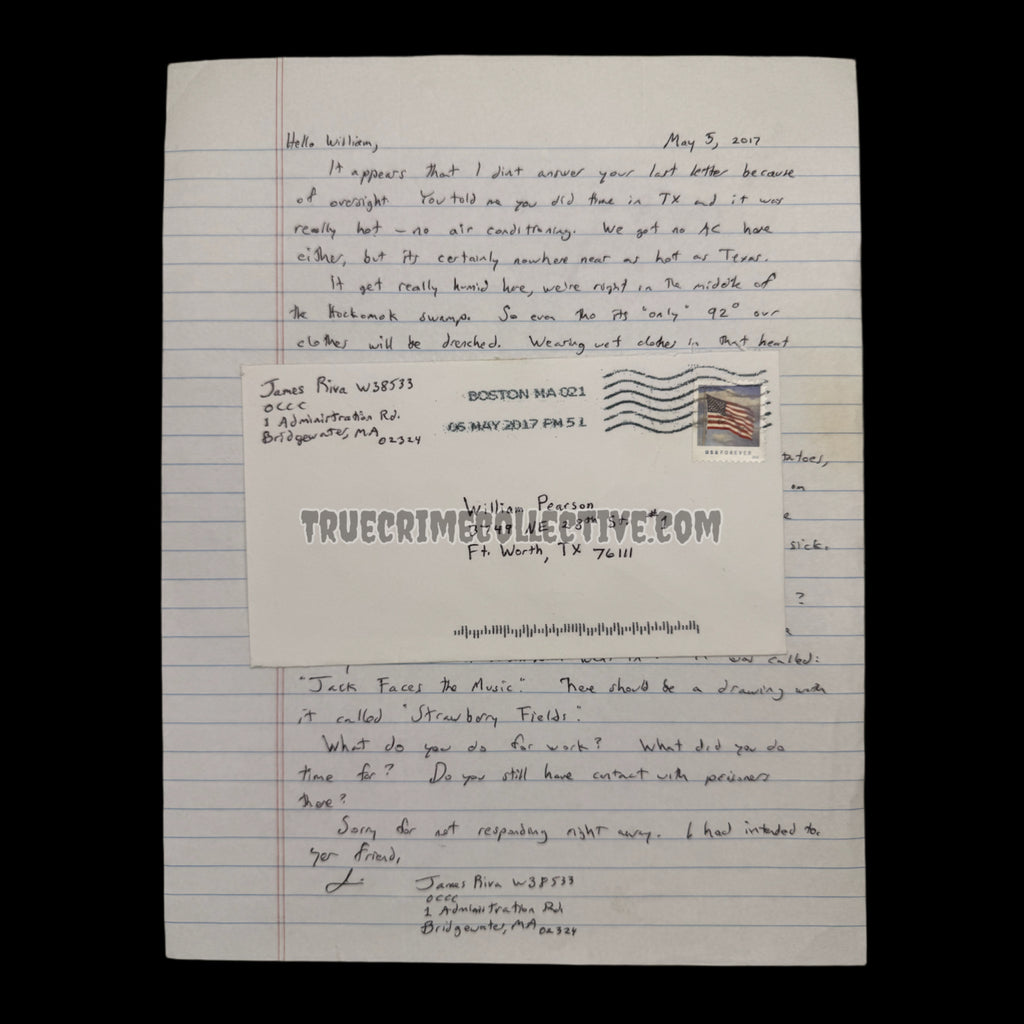 Hello William,    May 5, 2017
It appears that I dint answer your last letter because
of oversight. You told me you did time in TX and it was
really hot – no air conditioning. We got no AC here
either, but its certainly nowhere near as hot as Texas.
It get really humid here, we're right in the middle of
the Hockomok swamp. So even tho its "only" 92° our
clothes will be drenched. Wearing wet clothes in that heat
James Riva W38533
OCCC
1 Administration Rd.
Bridgewater, MA 02324
BOSTON MA 021
06 MAY 2017 PM 5 L
USA FOREVER
William Pearson
3749 NE 28th St. #1
Ft. Worth, TX 76111
TRUECRIMECOLLECTIVE.COM
on
sick.
?
was called:
"Jack Faces the Music." There should be a drawing with
it called "Strawberry Fields".
What do you do for work? What did you do
time for? Do you still have contact with prisoners
there?
Sorry for not responding right away. I had intended to.
Yer friend,
J.
James Riva W38533
OCCC
1 Administration Rd
Bridgewater, MA 02324